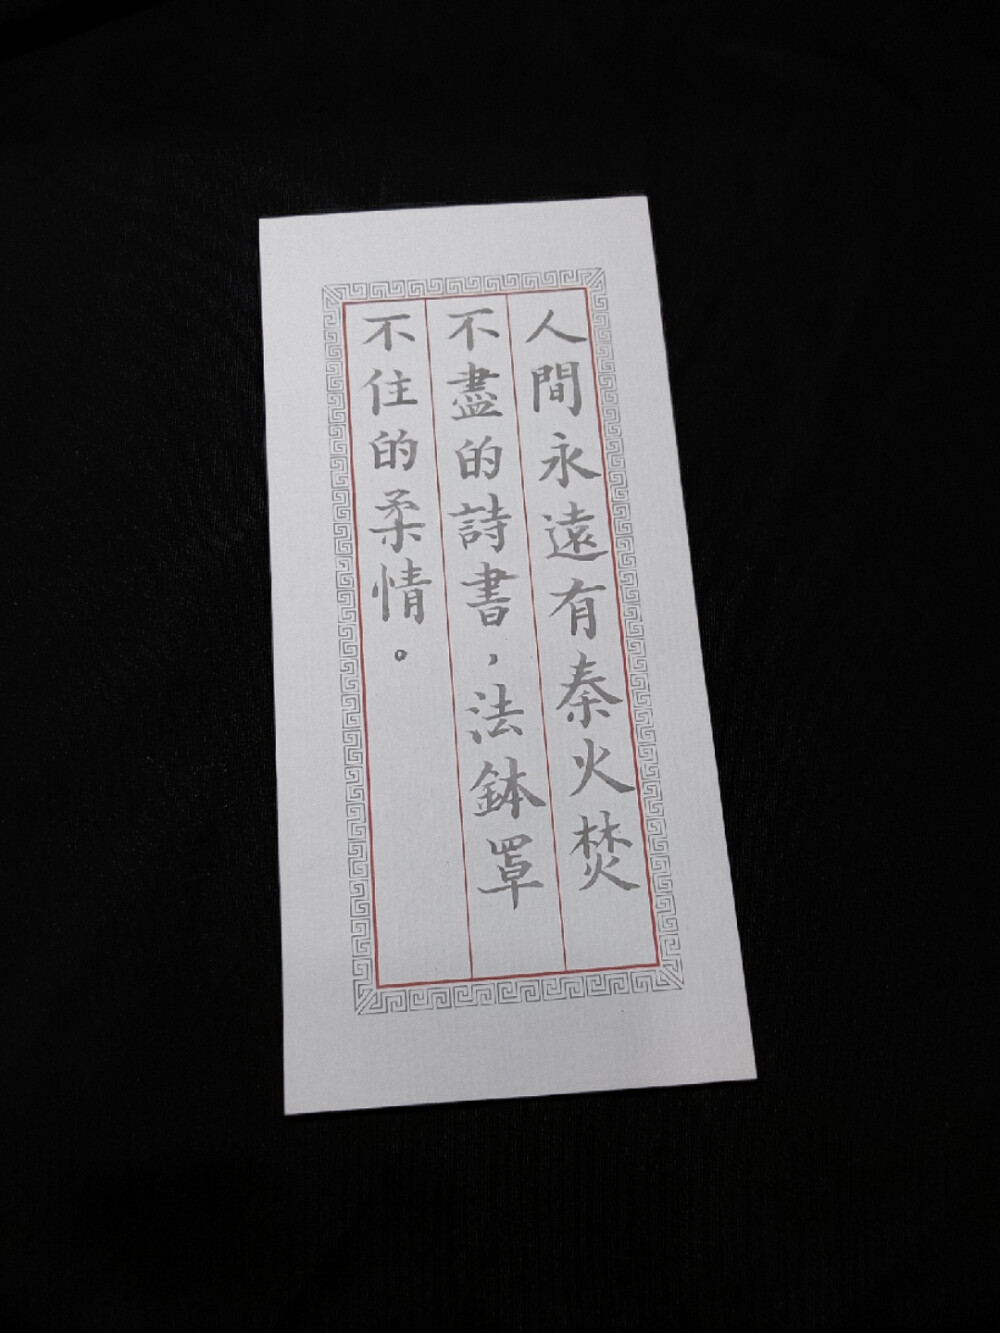 人間永遠有秦火焚
不盡的詩書，法鉢罩
不住的柔情。